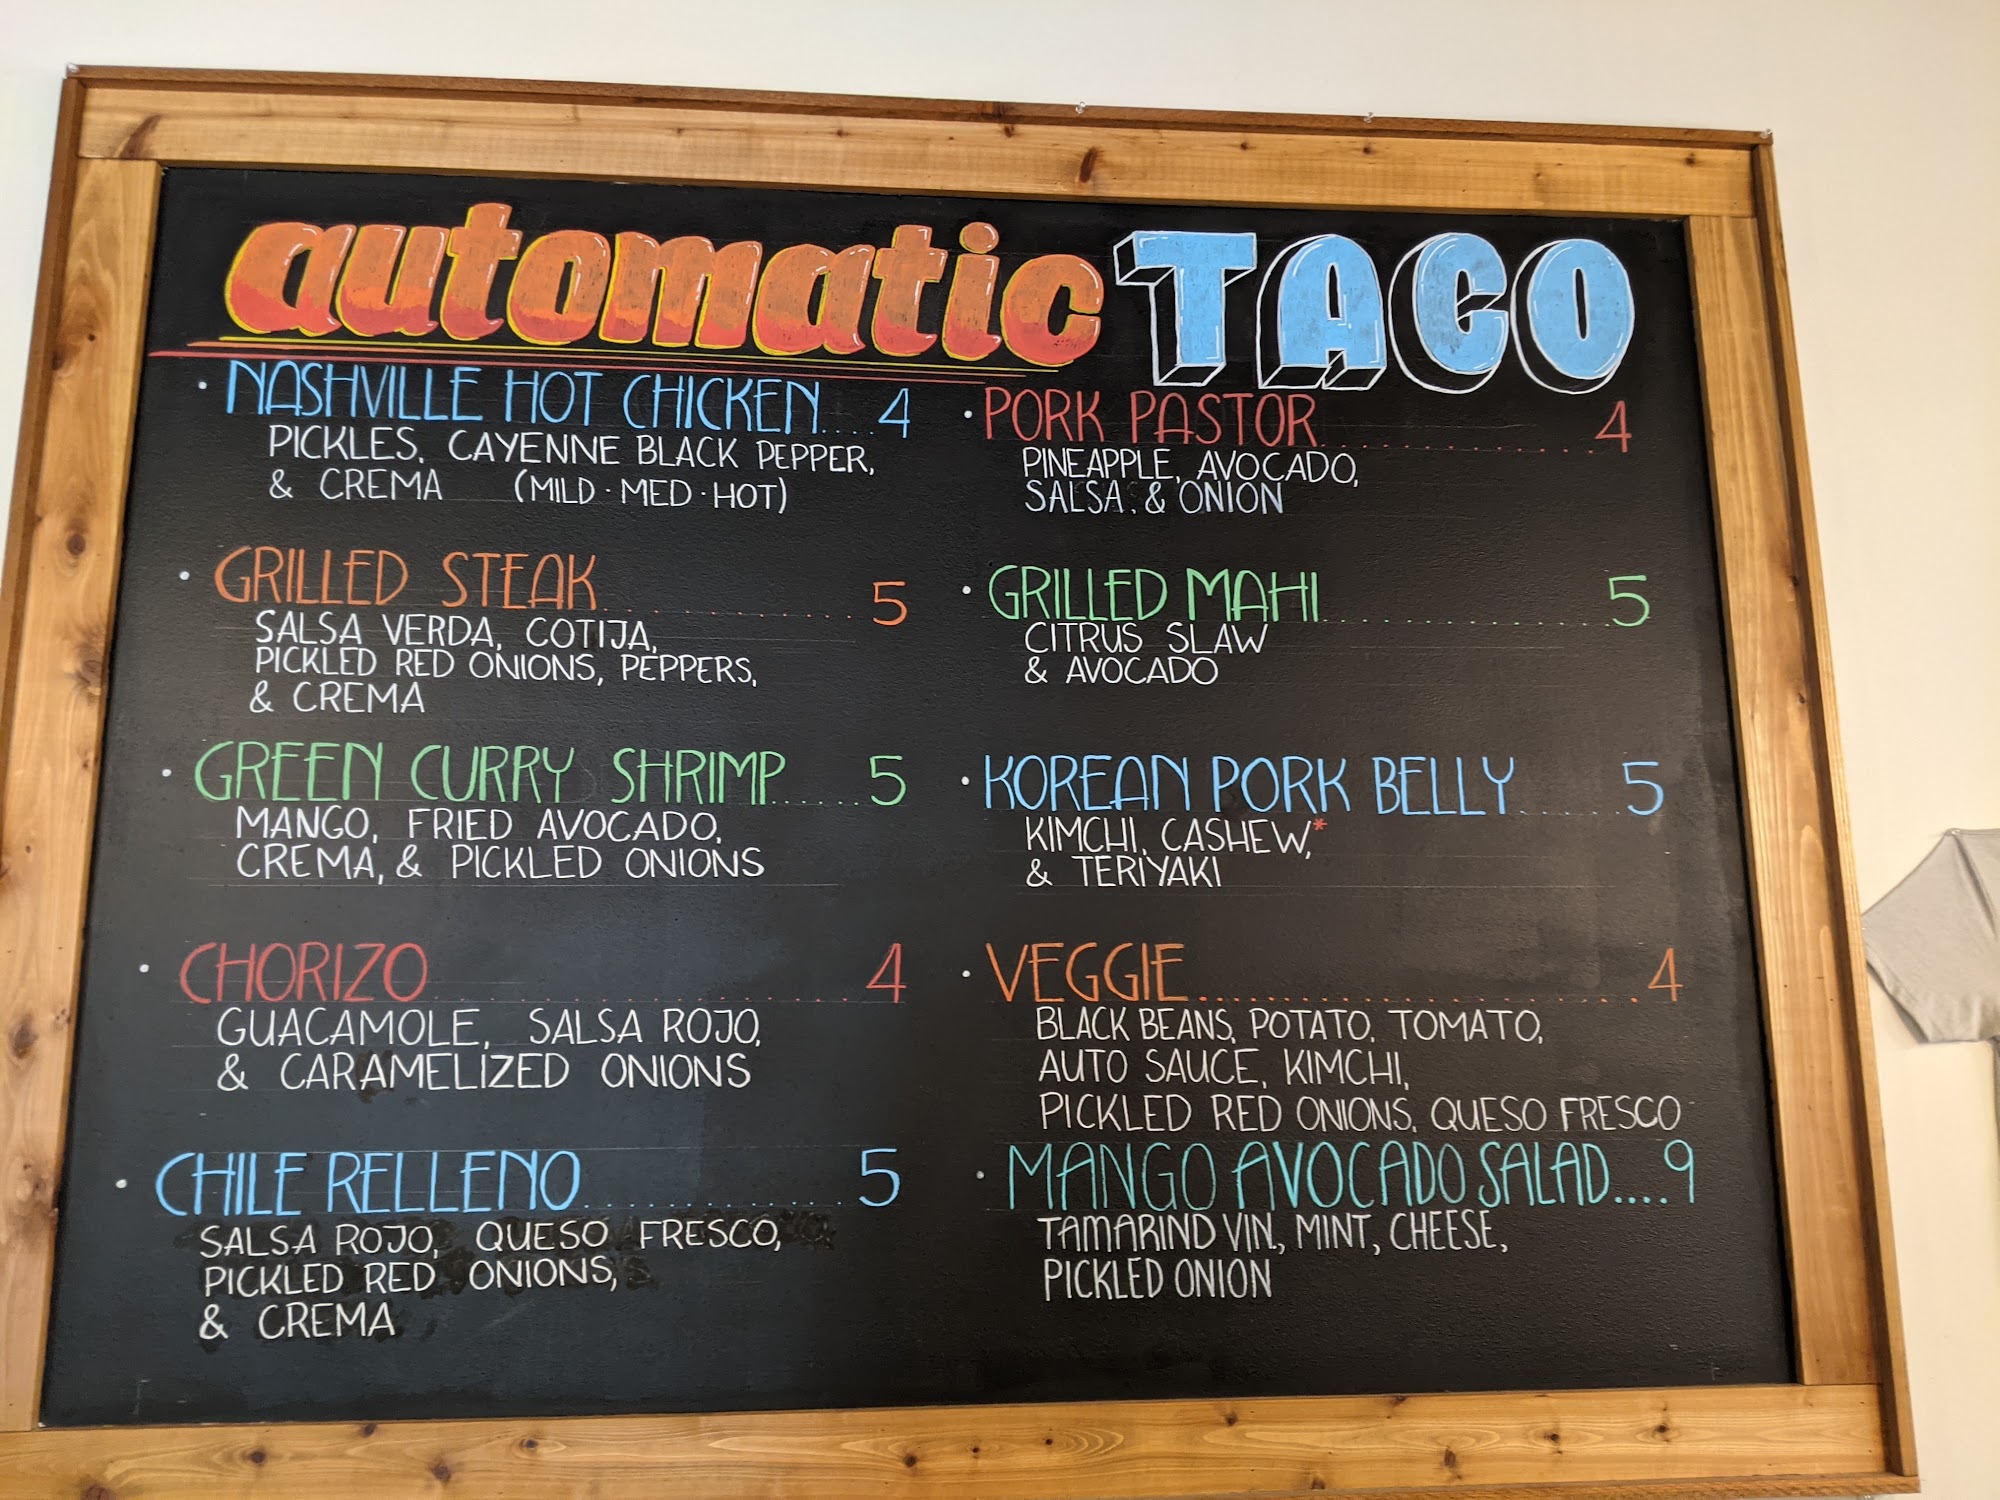 automatic TACO
• NASHVILLE HOT CHICKEN.... 4
PICKLES, CAYENNE BLACK PEPPER,
& CREMA (MILD · MED · HOT)
• GRILLED STEAK............ 5
SALSA VERDA, COTIJA,
PICKLED RED ONIONS, PEPPERS,
& CREMA
• GREEN CURRY SHRIMP...... 5
MANGO, FRIED AVOCADO,
CREMA, & PICKLED ONIONS
• CHORIZO.................. 4
GUACAMOLE, SALSA ROJO,
& CARAMELIZED ONIONS
• CHILE RELLENO............ 5
SALSA ROJO, QUESO FRESCO,
PICKLED RED ONIONS,
& CREMA
• PORK PASTOR.............. 4
PINEAPPLE, AVOCADO,
SALSA, & ONION
• GRILLED MAHI.............. 5
CITRUS SLAW
& AVOCADO
• KOREAN PORK BELLY...... 5
KIMCHI, CASHEW,*
& TERIYAKI
• VEGGIE.................... 4
BLACK BEANS, POTATO, TOMATO,
AUTO SAUCE, KIMCHI,
PICKLED RED ONIONS, QUESO FRESCO
• MANGO AVOCADO SALAD.... 9
TAMARIND VIN., MINT, CHEESE,
PICKLED ONION